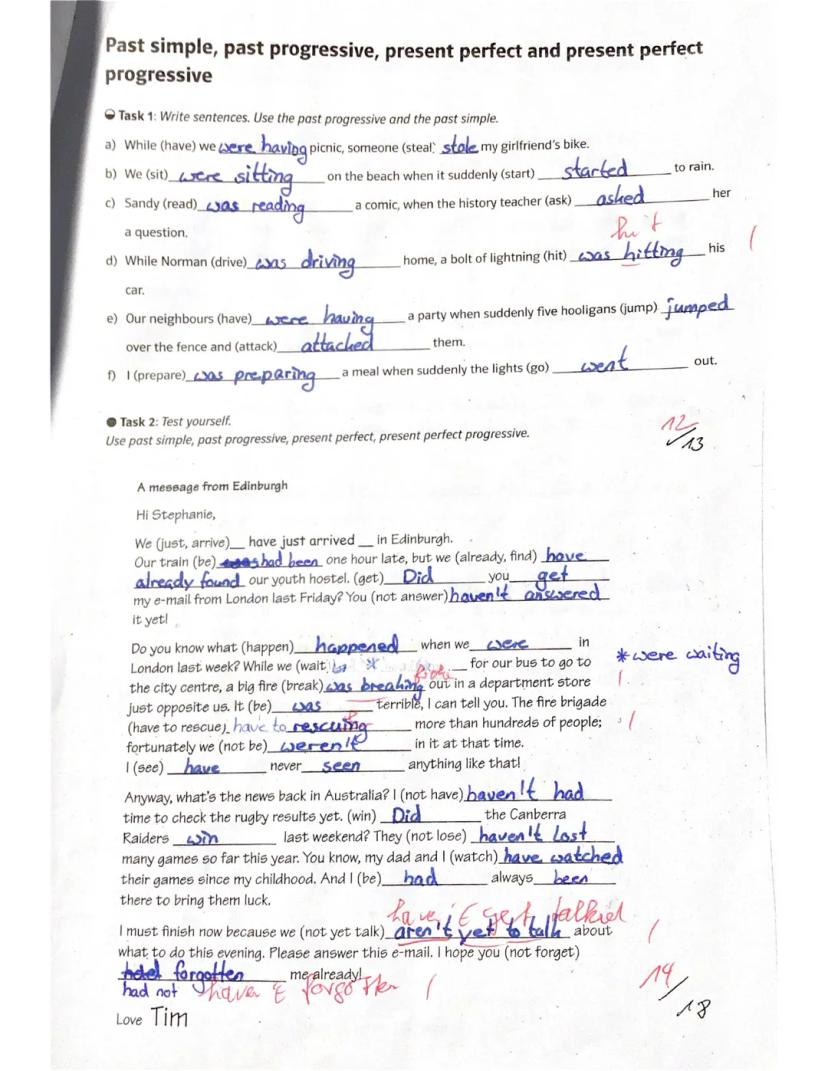 Past simple, past progressive, present perfect and present perfect
progressive
Task 1: Write sentences. Use the past progressive and the past simple.
a) While (have) we were having picnic, someone (steal) stole my girlfriend's bike.
b) We (sit) were sitting on the beach when it suddenly (start) started to rain.
c) Sandy (read) was reading a comic, when the history teacher (ask) asked her
a question.
hit
d) While Norman (drive) was driving home, a bolt of lightning (hit) was hitting his
car.
e) Our neighbours (have) were having a party when suddenly five hooligans (jump) jumped
over the fence and (attack) attacked them.
f) I (prepare) was preparing a meal when suddenly the lights (go) went out.
Task 2: Test yourself.
Use past simple, past progressive, present perfect, present perfect progressive.
12/13
A message from Edinburgh
Hi Stephanie,
We (just, arrive) have just arrived in Edinburgh.
Our train (be) had been one hour late, but we (already, find) have
already found our youth hostel. (get) Did you get
my e-mail from London last Friday? You (not answer) haven't answered
it yet!
Do you know what (happen) happened when we were in
London last week? While we (wait) * for our bus to go to
* were waiting
the city centre, a big fire (break) was breaking out in a department store
just opposite us. It (be) was terrible, I can tell you. The fire brigade
(have to rescue) have to rescuing more than hundreds of people;
fortunately we (not be) weren't in it at that time.
I (see) have never seen anything like that!
Anyway, what's the news back in Australia? I (not have) haven't had
time to check the rugby results yet. (win) Did the Canberra
Raiders win last weekend? They (not lose) haven't lost
many games so far this year. You know, my dad and I (watch) have watched
their games since my childhood. And I (be) had always been
there to bring them luck.
I must finish now because we (not yet talk) aren't yet to talk about
what to do this evening. Please answer this e-mail. I hope you (not forget)
forgotten me already!
had not
14/18
Love Tim